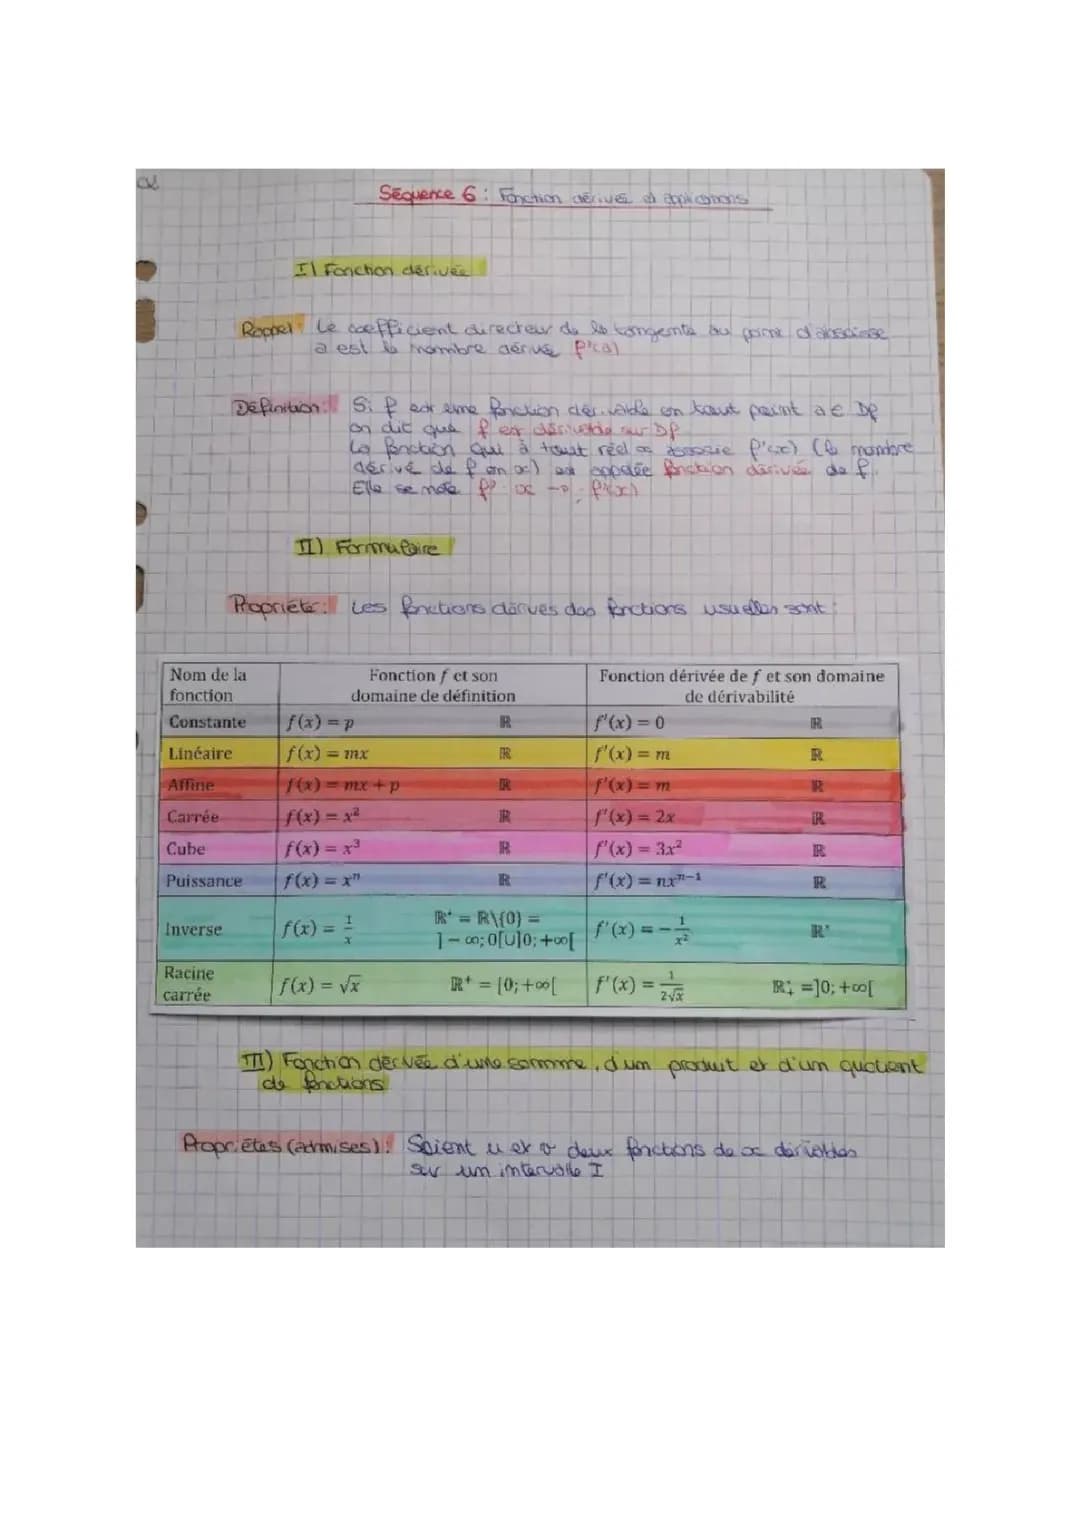 Séquence 6 : Fonction dérivée et applications
I) Fonction dérivée
Rappel : Le coefficient directeur de la tangente au point d'abscisse
a est le nombre dérivé f'(a)
Définition : Si f est une fonction dérivable en tout point a ∈ Df
on dit que f est dérivable sur Df
La fonction qui à tout réel x associe f'(x) (le nombre
dérivé de f en x) est appelée fonction dérivée de f.
Elle se note f' : x → f'(x)
II) Formulaire
Propriété : Les fonctions dérivés des fonctions usuelles sont :
Nom de la fonction | Fonction f et son domaine de définition | Fonction dérivée de f et son domaine de dérivabilité
Constante f(x) = p ℝ f'(x) = 0 ℝ
Linéaire f(x) = mx ℝ f'(x) = m ℝ
Affine f(x) = mx + p ℝ f'(x) = m ℝ
Carrée f(x) = x² ℝ f'(x) = 2x ℝ
Cube f(x) = x³ ℝ f'(x) = 3x² ℝ
Puissance f(x) = xⁿ ℝ f'(x) = nxⁿ⁻¹ ℝ
Inverse f(x) = 1/x ℝ* = ℝ\{0} = ]-∞; 0[∪]0; +∞[ f'(x) = -1/x² ℝ*
Racine carrée f(x) = √x ℝ⁺ = [0; +∞[ f'(x) = 1/(2√x) ℝ*₊ =]0; +∞[
III) Fonction dérivée d'une somme, d'un produit et d'un quotient
de fonctions
Propriétés (admises) : Soient u et v deux fonctions de x dérivables
sur un intervalle I